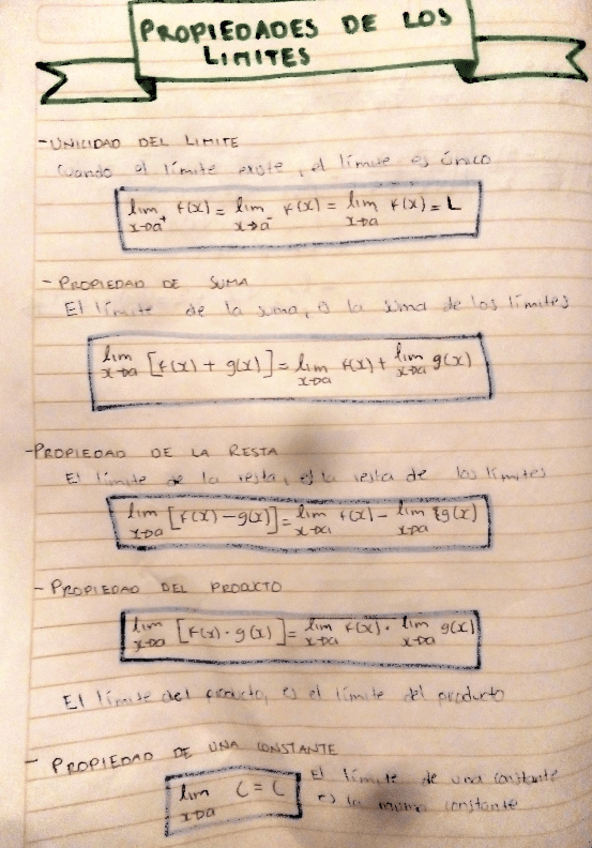 PROPIEDADES DE LOS
LIMITES
- UNICIDAD DEL LIMITE
Cuando el límite existe, el límite es único
lim x→a⁺ f(x) = lim x→a⁻ f(x) = lim x→a f(x) = L
- PROPIEDAD DE SUMA
El límite de la suma, es la suma de los límites
lim x→a [f(x) + g(x)] = lim x→a f(x) + lim x→a g(x)
- PROPIEDAD DE LA RESTA
El límite de la resta, es la resta de los límites
lim x→a [f(x) - g(x)] = lim x→a f(x) - lim x→a g(x)
- PROPIEDAD DEL PRODUCTO
lim x→a [f(x) · g(x)] = lim x→a f(x) · lim x→a g(x)
El límite del producto, es el límite del producto
- PROPIEDAD DE UNA CONSTANTE
lim x→a C = C
El límite de una constante
es la misma constante